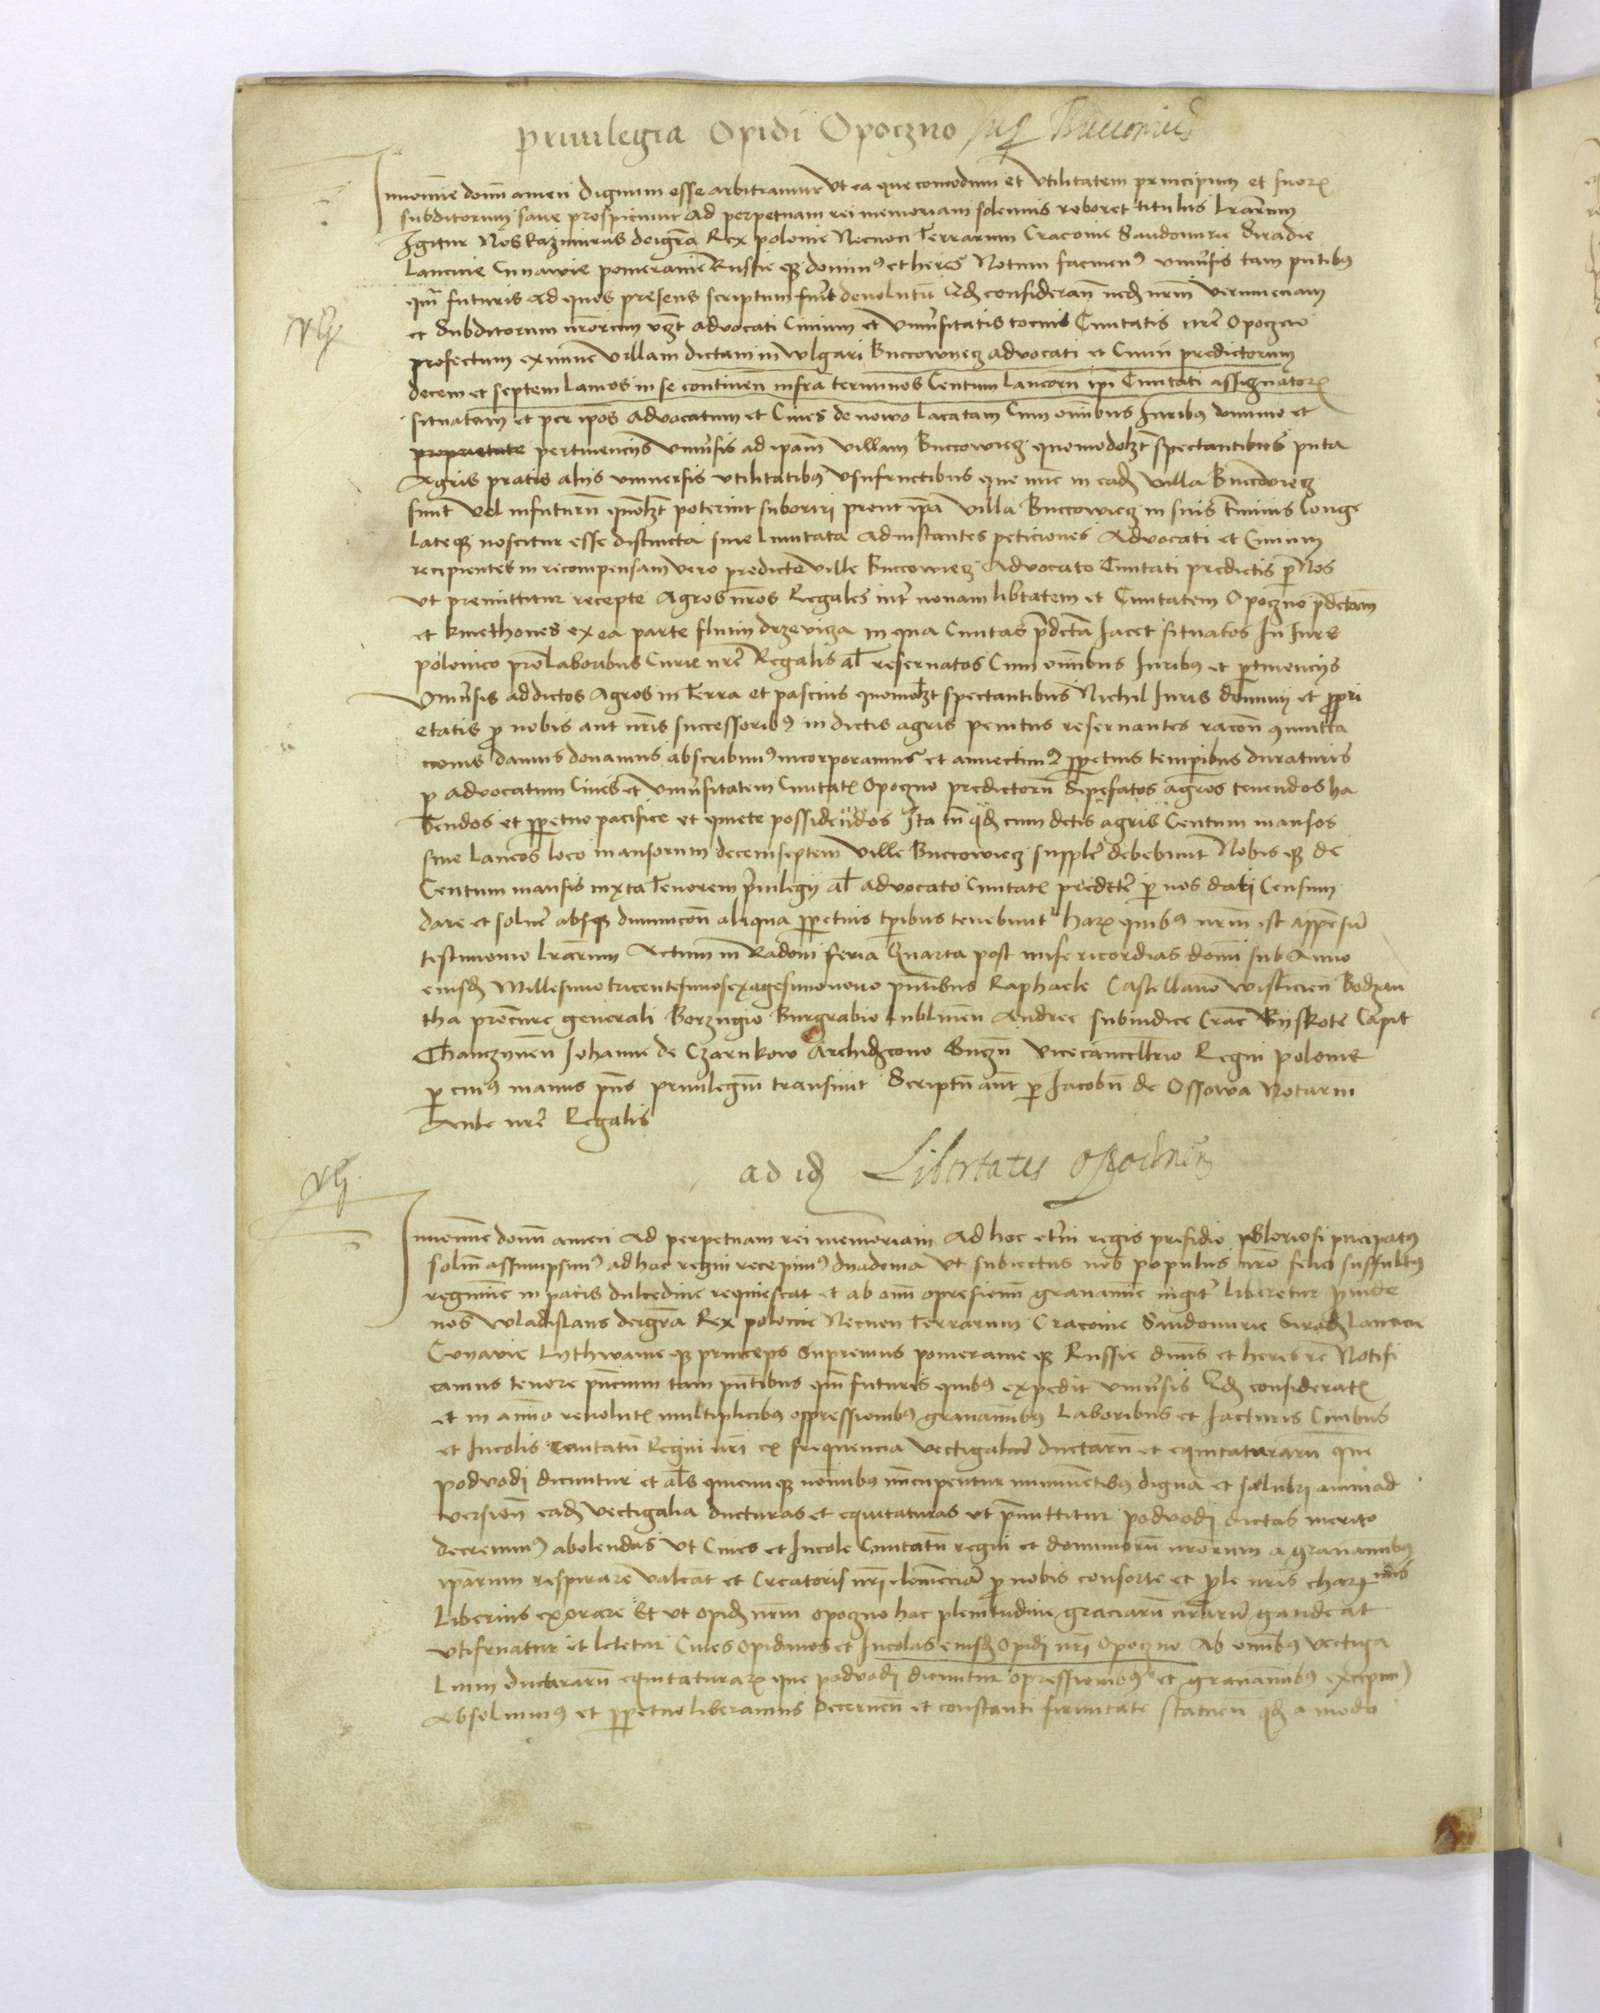 Priuilegia Opidi Opoczno
In nomine domi amen Dignum esse arbitramur Vt ea que comodum et vtilitatem principum et suorꝝ
subditorum prospiciunt ad perpetuam rei memoriam solemnis roboret titulus lrarum
Igitur Nos Kazimirus dei gra Rex polonie Necnon Terrarum Cracouie Sandomirie Siradie
Lancicie Cuyauie pomeranie Russie qꝫ dominꝰ et heres Notum facimꝰ vniuersis tam pntibꝰ
qm futuris ad quos presens scriptum fuerit deuolutu Qd consideran
et Subditorum nrorum vꝫt aduocati Ciuium et vniuersitatis tocius Ciuitatis nre Opoczno
profectum ex nunc villam dictam in vlgari Buccowiecz aduocati et Ciuiu predictorum
decem et septem laneos in se continen infra terminos Centum laneoru ipi Ciuitati assignatorꝝ
situatam et per ipos aduocatum et Ciues de nowo locatam Cum omibus Iuribꝰ dominio et
proprietate pertinencijs vniuersis ad ipam villam Buccowiecz quomodolꝫt spectantibus puta
Agris pratis alijs vniuersis vtilitatibꝰ vsufructibus que nunc in eadꝫ villa Buccowiecz
sunt vel in futurum quolꝫt poterint suboriri prout ipa villa Buccowiecz in suis terminis longe
lateqꝫ noscitur esse distincta siue limitata ad instantes peticiones Aduocati et Ciuium
recipientes in recompensam vero predicte ville Buccowiecz Aduocato Ciuitati predictis per Nos
vt premittitur recepte Agros nros Regales inter nouam libertatem et Ciuitatem Opoczno pdctam
et kmethones ex ea parte fluuii drzewicza in qua Ciuitas pdcta Iacet situatos In Iure
polonico pro laboribus Curie nre Regalis al reseruatos Cum omibus Iuribꝰ et pertinencijs
vniuersis ad dictos Agros in Terra et pascuis quomolꝫt spectantibus Nichil Iuris dominij et ppri
etatis p nobis aut nris successoribꝰ in dictis agris penitus reseruantes racon
cionis damus donamus abscribimꝰ incorporamus et annectimꝰ ppetuis temporibus duraturis
p aduocatum Ciues et vniuersitatem Ciuitatꝭ Opoczno predictorum Sepefatos agros tenendos ha
bendos et ppetuo pacifice et quiete possidendos Ita tn qd cum dctis agris Centum mansos
siue laneos loco mansorum decemseptem ville Buccowiecz supplere debebunt Nobis qꝫ de
Centum mansis iuxta Tenorem priuilegij al aduocato Ciuitatꝭ predicte p nos dati Censum
dare et soluere absqꝫ diminucon aliqua ppetuis tpibus tenebunt harꝝ quibꝰ nrm est appensu
testimonio lrarum Actum in Radom feria Quarta post misericordias domi sub Anno
eiusdꝫ Millesimo tricentesimosexagesimonono pntibus Raphaele Castellano Wislicien Bodzan
tha procure generali Borzugio Burgrabio lublinen Andree subiudice Crac Byskote Capit
Chanczynen Johanne de Czarnkow Archidꝫcono Gnezn Vicecancellrio Regni polonie
p cuiꝰ manus pns priuilegium transiuit Scriptu aut p Iacobu de Ossowa Notariu
Aule nre Regalis
ad idꝫ Libertatis Opocznen
In nomine domi amen Ad perpetuam rei memoriam Ad hoc eterni regis presidio gloriosi pncipatꝰ
soliu assumpsimꝰ ad hac regni recepimꝰ dyadema vt subiectus nob populus nro felici suffultꝰ
regimine in pacis dulcedine requiescat et ab omi opresionum grauamine iugiter liberetur proinde
nos Wladislaus dei gra Rex polonie Necnon Terrarum Cracouie Sandomirie Siradꝫ lancicie
Cuyauie Lythwanie qꝫ princeps Supremus pomeranie qꝫ Russie dnus et heres rc Notifi
camus tenore pncium tam pntibus qm futuris quibꝰ expedit vniuersis Qd consideratꝭ
et in animo reuolutꝭ multiplicibꝰ oppressionibꝰ grauaminibꝰ laboribus et Iacturis Ciuibus
et Incolis Ciuitatu Regni nri ex frequencia vectigaliu ducturaru et equitaturaru que
podvodi dicuntur et als quicunqꝫ nominibꝰ nuncupentur imminentibꝰ digna et salubri animad
version eadꝫ vectigalia ducturas et equitaturas vt pmittitur podvodi dictas merito
decreuimꝰ abolendas vt Ciues et Incole Ciuitatu regni et dominioru nrorum a grauaminibꝰ
ipsarum respirare valeat et Creatoris nri clemencia p nobis consorte et prole nris charꝫmis
Liberius exorare Et vt opidꝫ nrm opoczno hac plenitudine graciaru nraru gaudeat
vtifruatur et letetur Ciues opidanos et Incolas eiusdꝫ opidi nri Opoczno Ab omibꝰ vectiga
lium ducturaru equitaturarꝝ que podvodi dicuntur opressionibꝰ et grauaminibꝰ excipimꝰ
Absoluimꝰ et ppetuo liberamus Decernen et constanti firmitate statuen qd a modo